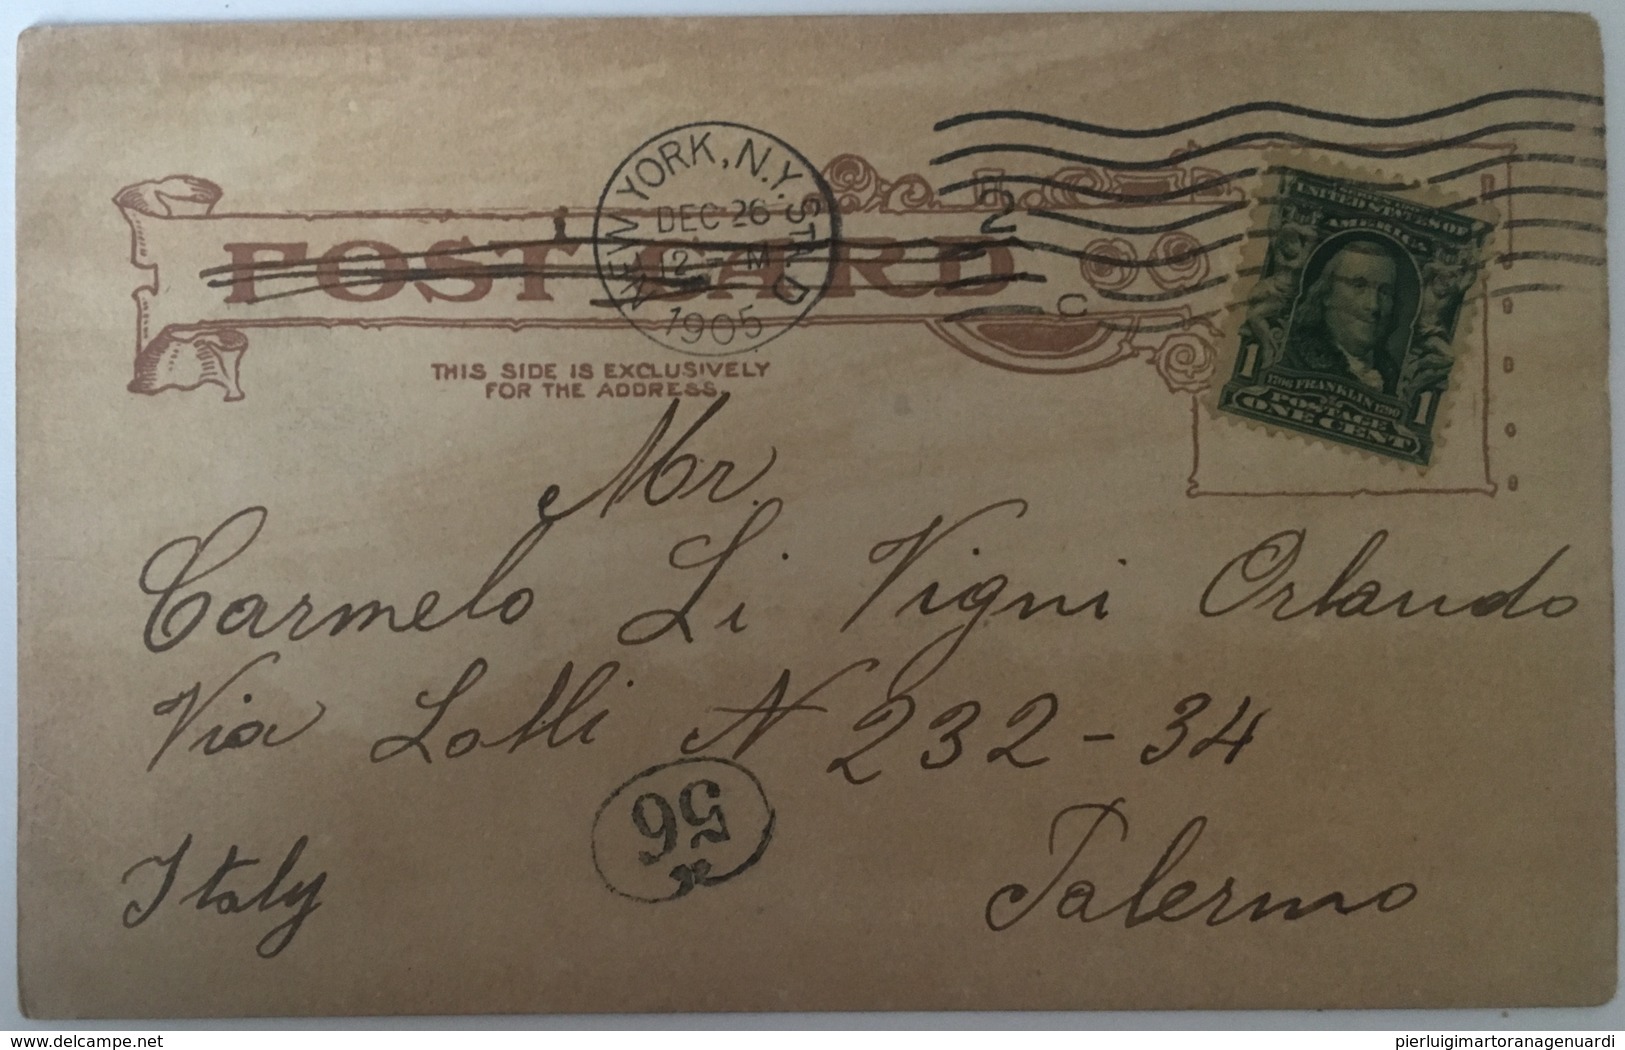 NEW YORK, N.Y. STA. D
DEC 26
12 - M
1905
2
C
POST CARD
THIS SIDE IS EXCLUSIVELY
FOR THE ADDRESS.
UNITED STATES OF
AMERICA
1 1
1706 FRANKLIN 1790
POSTAGE
ONE CENT
Mr
Carmelo Li Vigni Orlando
Via Lolli N 232-34
56
Italy Palermo
delcampe.net
pierluigimartoranagenuardi